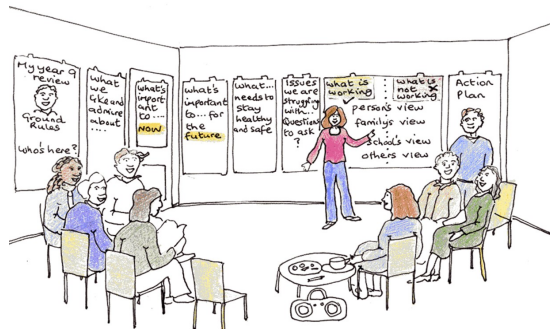 My year 9
review
Ground
Rules
Who's here?
what
we
like and
admire
about
....
what's
import
ant
to....
NOW
what's
important
to.... for
the
future
what...
needs to
stay
healthy
and safe
Issues
we are
struggling
with...
Questions
to ask
?
what is
working ✓
what is
not
working ✗
person's view
family's view
school's view
others view
Action
Plan